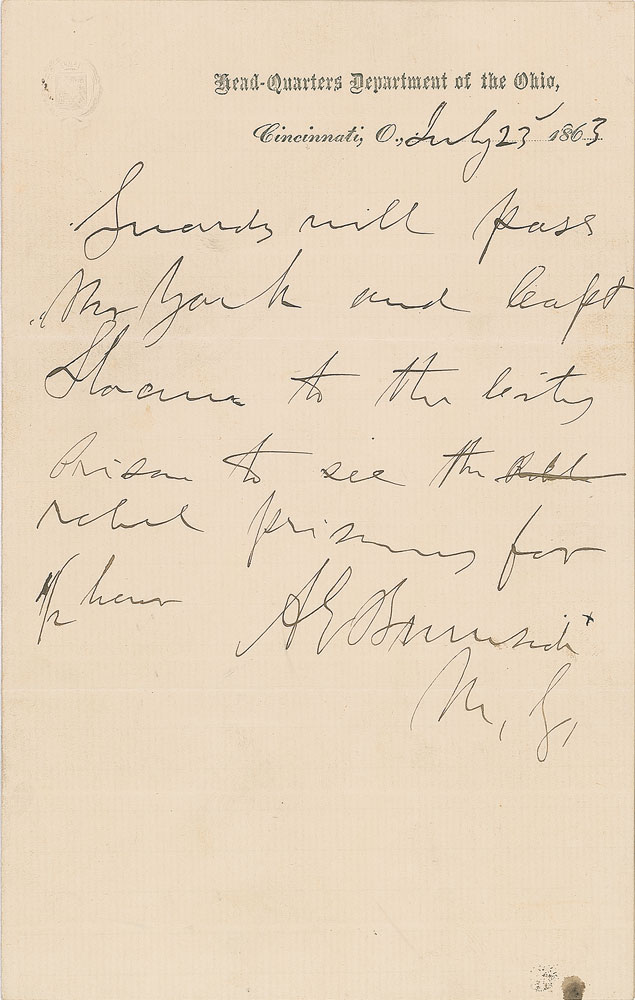 Head-Quarters Department of the Ohio,
Cincinnati, O., July 23 1863
Guards will pass
Mr York and Capt
Sloane to the City
Prison to see the
rebel prisoners for
1/2 hour
A E Burnside
M. G.